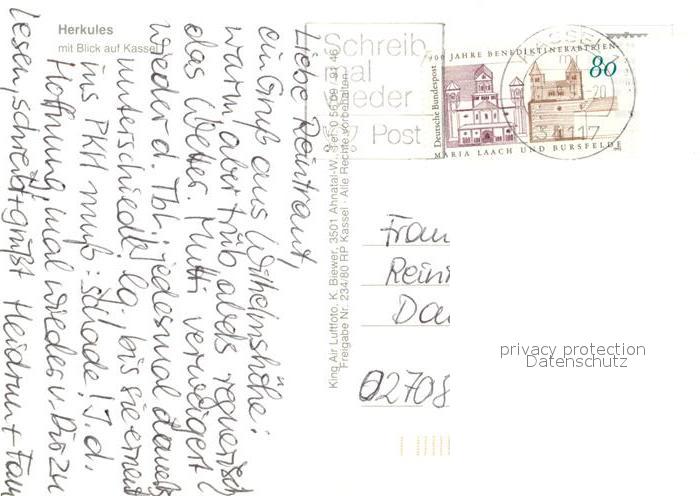 Herkules
mit Blick auf Kassel
Liebe Reintraut,
ein Gruß aus Wilhelmshöhe!
warm, aber trüb abds regnerisch
das Wetter. Mutti verweigert
wieder d. Tbl., jedesmal dauert's
unterschiedl. lg. bis sie erneut
ins PKH muß: schade! I. d.
Hoffnung, mal wieder v. Dir zu
lesen, schreibt + grüßt Heidrun + Fam
King Air Luftfoto, K. Biewer, 3501 Ahnatal-W., Tel. 0 56 09 / 91 46
Freigabe Nr. 234/80 RP Kassel · Alle Rechte vorbehalten
Schreib
mal
wieder
Post
900 JAHRE BENEDIKTINERABTEIEN
80
Deutsche Bundespost
MARIA LAACH UND BURSFELDE
KASSEL
-20
34117
Frau
Rein
Da
02708
privacy protection
Datenschutz